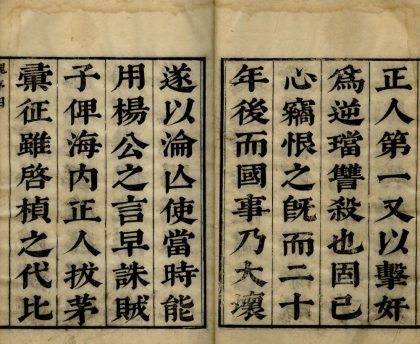 正人第一又以擊奸
為逆璫讐殺也固已
心竊恨之旣而二十
年後而國事乃大壞
遂以淪亾使當時能
用楊公之言早誅賊
子俾海内正人拔茅
彙征雖啓楨之代比